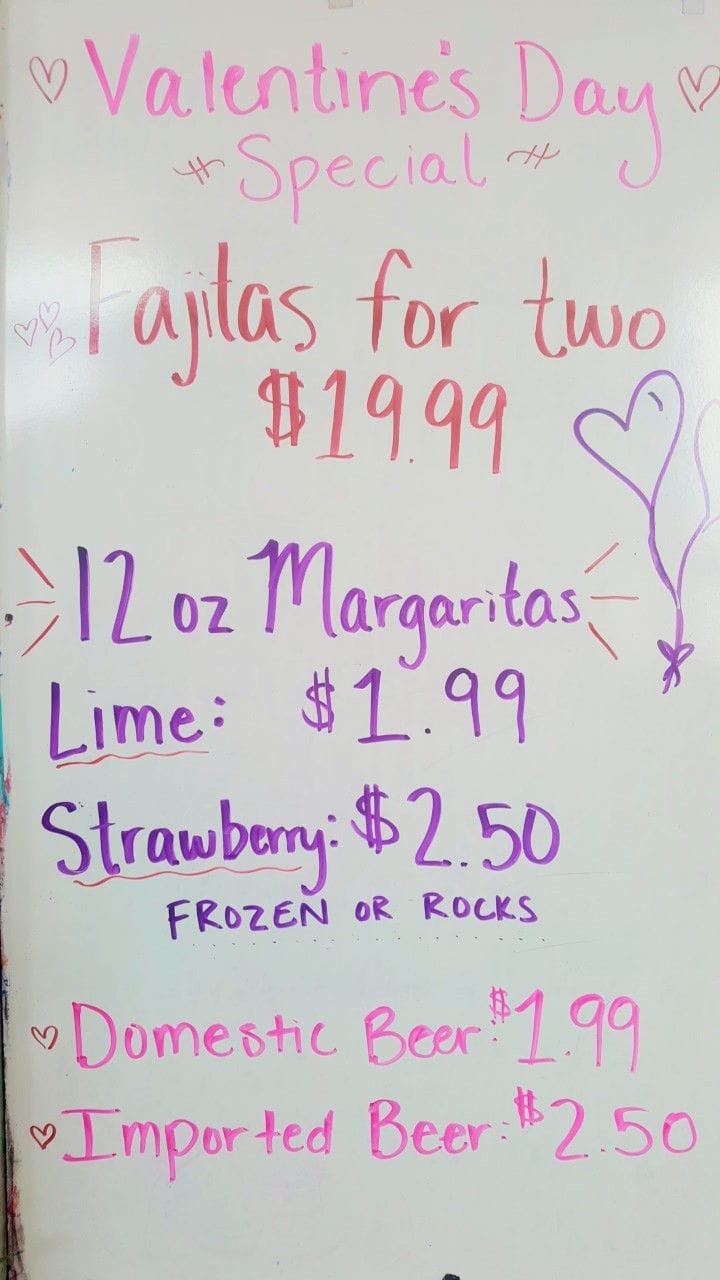 Valentine's Day
Special
Fajitas for two
$19.99
12 oz Margaritas
Lime: $1.99
Strawberry: $2.50
FROZEN OR ROCKS
Domestic Beer: $1.99
Imported Beer: $2.50